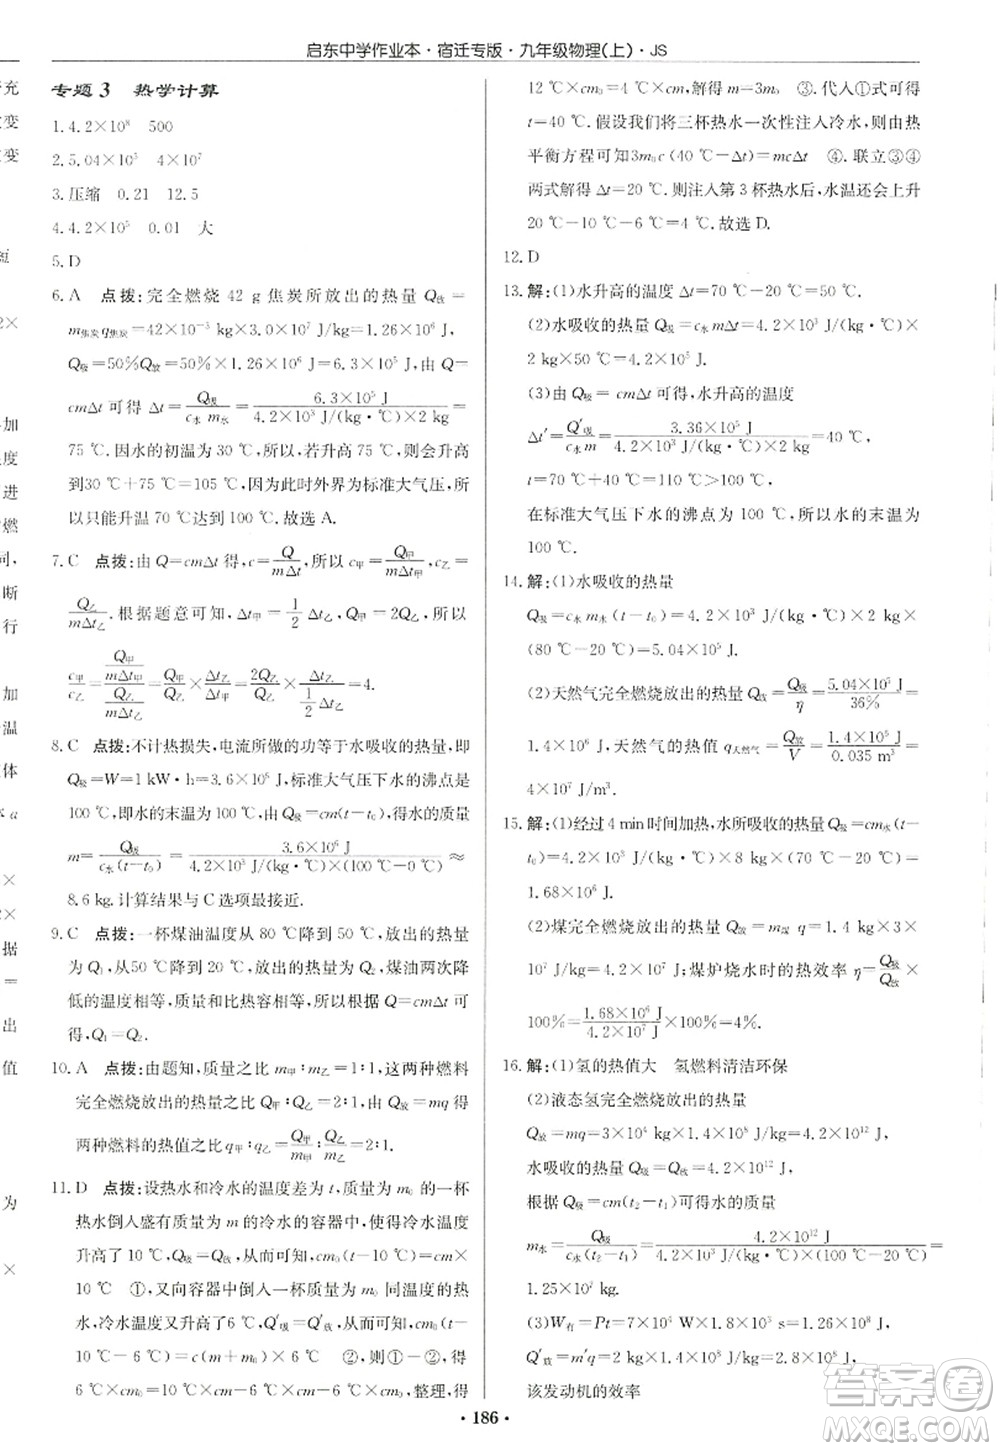 启东中学作业本·宿迁专版·九年级物理(上)·JS
专题3 热学计算
1.4.2×10⁸ 500
2.5.04×10⁵ 4×10⁷
3.压缩 0.21 12.5
4.4.2×10⁵ 0.01 大
5.D
6.A 点拨:完全燃烧 42 g 焦炭所放出的热量 Q放=
m焦炭q焦炭=42×10⁻³ kg×3.0×10⁷ J/kg=1.26×10⁶ J,
Q吸=50%Q放=50%×1.26×10⁶ J=6.3×10⁵ J,由 Q
=cmΔt 可得 Δt=Q吸/(c水 m水)=6.3×10⁵ J/(4.2×10³ J/(kg·℃)×2 kg)=
75 ℃.因水的初温为 30 ℃,所以,若升高 75 ℃,应升高
到30 ℃+75 ℃=105 ℃,因此时外界为标准大气压,所
以只能升温 70 ℃达到 100 ℃.故选 A.
7.C 点拨:由 Q=cmΔt 得,c=Q/(mΔt),所以 c甲=Q甲/(mΔt甲),c乙=
Q乙/(mΔt乙).根据题意可知,Δt甲=1/2 Δt乙,Q甲=2Q乙,所以
c甲/c乙=(Q甲/(mΔt甲))/(Q乙/(mΔt乙))=Q甲/Q乙×Δt乙/Δt甲=2Q乙/Q乙×Δt乙/(1/2 Δt乙)=4.
8.C 点拨:不计热损失,电流所做的功等于水吸收的热量,即
Q吸=W=1 kW·h=3.6×10⁶ J,标准大气压下水的沸点是
100 ℃,即水的末温为 100 ℃,由 Q吸=cm(t-t₀),得水的质量
m=Q吸/(c水(t-t₀))=3.6×10⁶ J/(4.2×10³ J/(kg·℃)×(100 ℃-0 ℃))≈
8.6 kg.计算结果与 C 选项最接近.
9.C 点拨:一杯煤油温度从 80 ℃降到 50 ℃,放出的热量
为 Q₁,从50 ℃降到 20 ℃,放出的热量为 Q₂,煤油两次降
低的温度相等,质量和比热容相等,所以根据 Q=cmΔt 可
得,Q₁=Q₂.
10.A 点拨:由题知,质量之比 m甲∶m乙=1∶1,这两种燃料
完全燃烧放出的热量之比 Q甲∶Q乙=2∶1,由 Q放=mq 得
两种燃料的热值之比 q甲∶q乙=Q甲/m甲∶Q乙/m乙=2∶1.
11.D 点拨:设热水和冷水的温度差为 t,将质量为 m₀ 的一杯
热水倒入盛有质量为 m 的冷水的容器中,使得冷水温度
升高了 10 ℃,Q吸=Q放,从而可知,cm₀(t-10 ℃)=cm×
10 ℃ ①,又向容器中倒入一杯质量为 m₀ 同温度的热
水,冷水温度升高了6 ℃,Q′吸=Q′放,从而可知,cm₀(t-
10 ℃-6 ℃)=c(m+m₀)×6 ℃ ②,则①-②得:
6 ℃×cm₀=10 ℃×cm-6 ℃×cm-6 ℃×cm₀,整理,得
12 ℃×cm₀=4 ℃×cm,解得 m=3m₀ ③.代入①式可得
t=40 ℃.假设我们将三杯热水一次性注入冷水,则由热
平衡方程可知3m₀c(40 ℃-Δt)=mcΔt ④.联立③④
两式解得 Δt=20 ℃.则注入第 3 杯热水后,水温还会上升
20 ℃-10 ℃-6 ℃=4 ℃.故选 D.
12.D
13.解:(1)水升高的温度 Δt=70 ℃-20 ℃=50 ℃.
(2)水吸收的热量 Q吸=c水 mΔt=4.2×10³ J/(kg·℃)×
2 kg×50 ℃=4.2×10⁵ J.
(3)由 Q吸=cmΔt 可得,水升高的温度
Δt′=Q′吸/(c水 m)=3.36×10⁵ J/(4.2×10³ J/(kg·℃)×2 kg)=40 ℃,
t′=t+Δt′=70 ℃+40 ℃=110 ℃>100 ℃,
在标准大气压下水的沸点为 100 ℃,所以水的末温为
100 ℃.
14.解:(1)水吸收的热量
Q吸=c水 m水(t-t₀)=4.2×10³ J/(kg·℃)×2 kg×
(80 ℃-20 ℃)=5.04×10⁵ J.
(2)天然气完全燃烧放出的热量 Q放=Q吸/η=5.04×10⁵ J/36%=
1.4×10⁶ J,天然气的热值 q天然气=Q放/V=1.4×10⁶ J/0.035 m³=
4×10⁷ J/m³.
15.解:(1)经过 4 min时间加热,水所吸收的热量Q吸=cm水(t-
t₀)=4.2×10³ J/(kg·℃)×8 kg×(70 ℃-20 ℃)=
1.68×10⁶ J.
(2)煤完全燃烧放出的热量 Q放=m煤 q=1.4 kg×3×
10⁷ J/kg=4.2×10⁷ J;煤炉烧水时的热效率 η=Q吸/Q放×
100%=1.68×10⁶ J/4.2×10⁷ J×100%=4%.
16.解:(1)氢的热值大 氢燃料清洁环保
(2)液态氢完全燃烧放出的热量
水吸收的热量 Q吸=Q放=4.2×10¹² J,
根据 Q吸=cm(t₂-t₁)可得水的质量
m水=Q吸/(c水(t₂-t₁))=
1.25×10⁷ kg.
该发动机的效率
·186·
答案圈
MXQE.COM